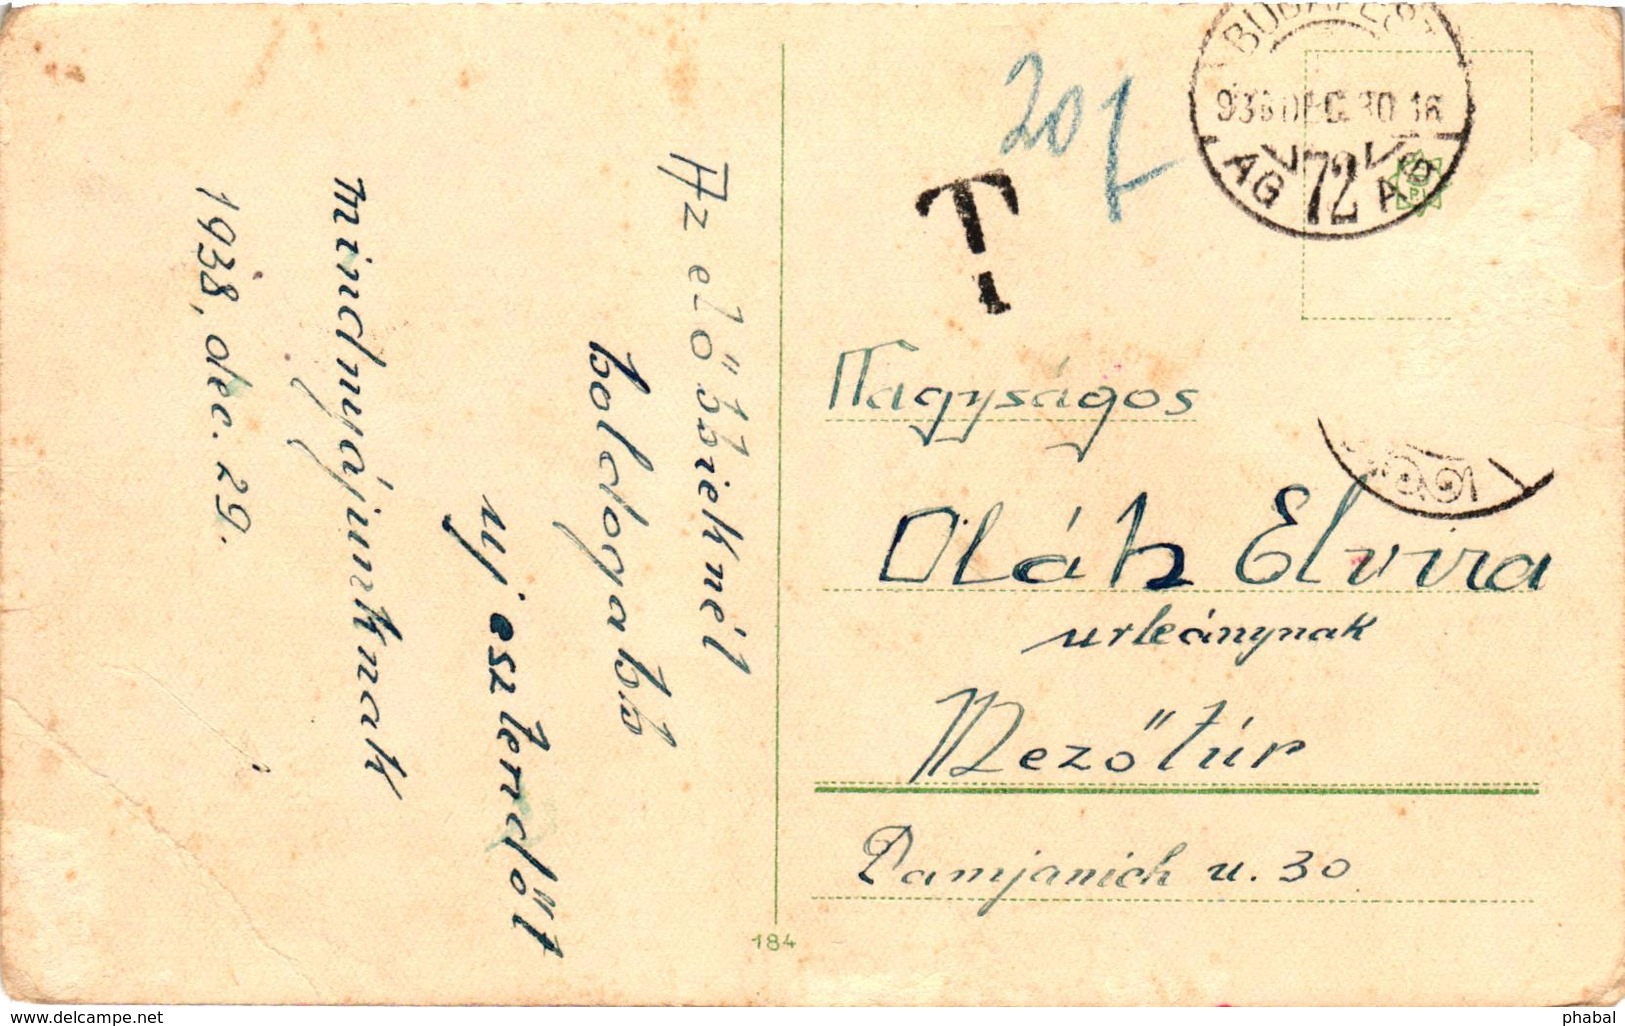 Az előbbieknél
boldogabb
uj esztendőt
mindnyájunknak
1938, dec. 29.
20 f
T
BUDAPEST
938 DEC. 30. 16
72
Nagyságos
Oláh Elvira
urleánynak
Mezőtúr
Damjanich u. 30
184
www.delcampe.net
phabal